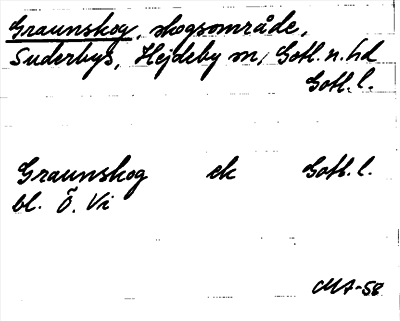 Graunskog, skogsområde,
Suderbys, Hejdeby sn, Gotl. n. hd
Gotl. l.
Graunskog ek Gotl. l.
bl. Ö. Vi
MA-58